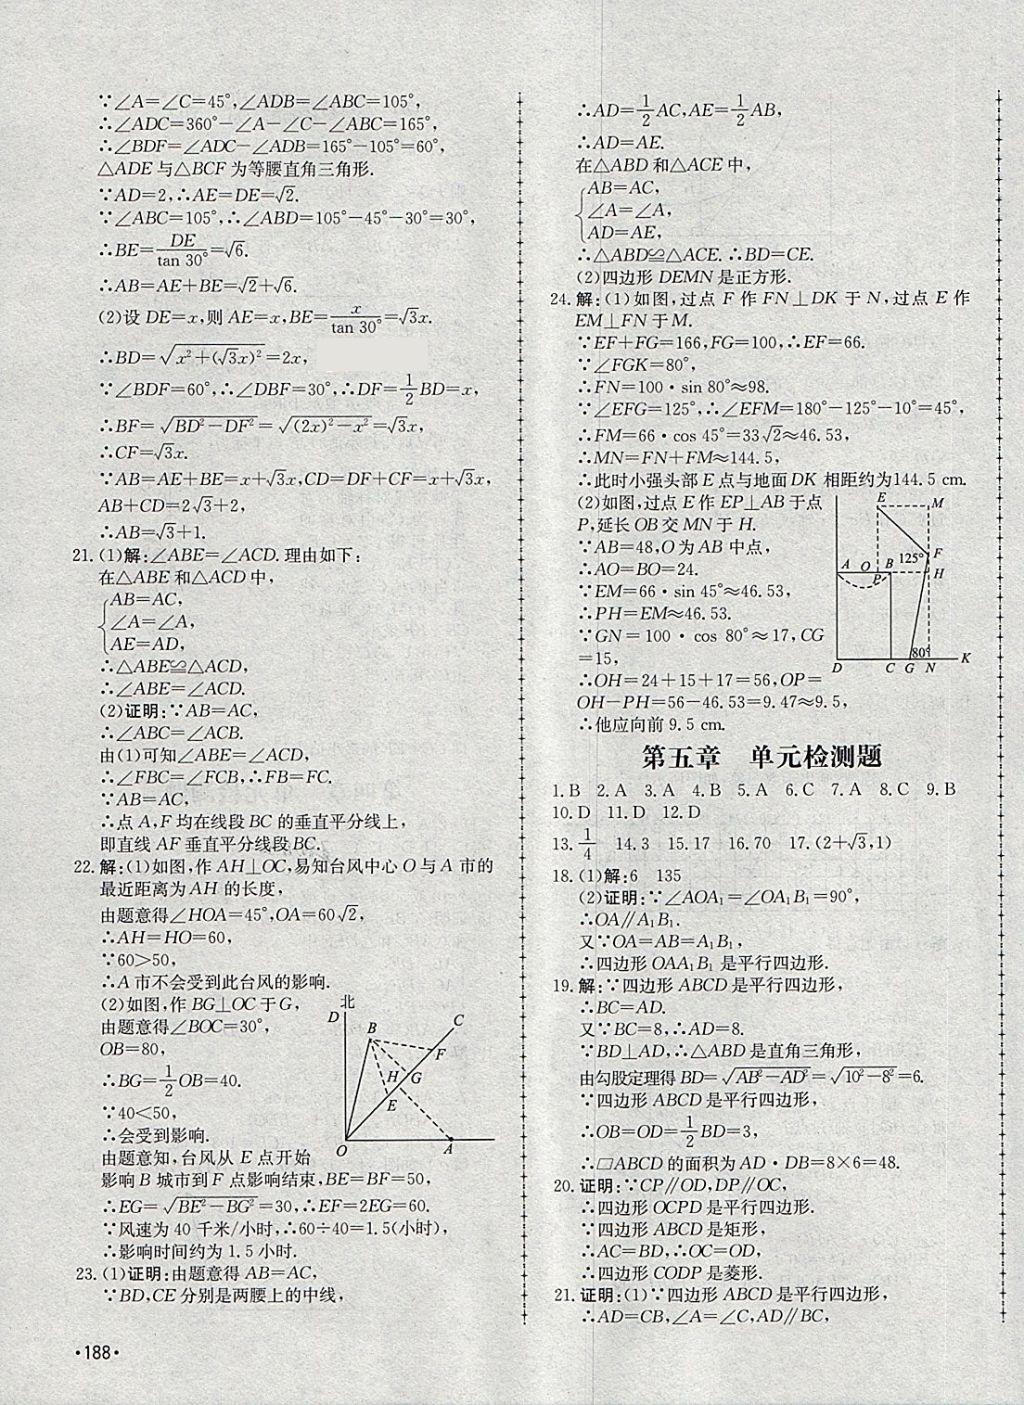 ∵∠A=∠C=45°,∠ADB=∠ABC=105°,
∴∠ADC=360°-∠A-∠C-∠ABC=165°,
∴∠BDF=∠ADC-∠ADB=165°-105°=60°,
△ADE与△BCF为等腰直角三角形.
∵AD=2,∴AE=DE=√2.
∵∠ABC=105°,∴∠ABD=105°-45°-30°=30°,
∴BE=DE/tan 30°=√6.
∴AB=AE+BE=√2+√6.
(2)设DE=x,则AE=x,BE=x/tan 30°=√3x.
∴BD=√(x²+(√3x)²)=2x,
∵∠BDF=60°,∴∠DBF=30°,∴DF=1/2BD=x,
∴BF=√(BD²-DF²)=√((2x)²-x²)=√3x,
∴CF=√3x.
∵AB=AE+BE=x+√3x,CD=DF+CF=x+√3x,
AB+CD=2√3+2,
∴AB=√3+1.
21.(1)解:∠ABE=∠ACD.理由如下:
在△ABE和△ACD中,
AB=AC,
∠A=∠A,
AE=AD,
∴△ABE≌△ACD,
∴∠ABE=∠ACD.
(2)证明:∵AB=AC,
∴∠ABC=∠ACB.
由(1)可知∠ABE=∠ACD,
∴∠FBC=∠FCB,∴FB=FC.
∵AB=AC,
∴点A,F均在线段BC的垂直平分线上,
即直线AF垂直平分线段BC.
22.解:(1)如图,作AH⊥OC,易知台风中心O与A市的
最近距离为AH的长度,
由题意得∠HOA=45°,OA=60√2,
∴AH=HO=60,
∵60>50,
∴A市不会受到此台风的影响.
(2)如图,作BG⊥OC于G,
由题意得∠BOC=30°,
OB=80,
∴BG=1/2OB=40.
∵40<50,
∴会受到影响.
北
D
B
C
F
H
G
E
O
A
由题意知,台风从E点开始
影响B城市到F点影响结束,BE=BF=50,
∴EG=√(BE²-BG²)=30,∴EF=2EG=60.
∵风速为40千米/小时,∴60÷40=1.5(小时),
∴影响时间约为1.5小时.
23.(1)证明:由题意得AB=AC,
∵BD,CE分别是两腰上的中线,
·188·
∴AD=1/2AC,AE=1/2AB,
∴AD=AE.
在△ABD和△ACE中,
AB=AC,
∠A=∠A,
AD=AE,
∴△ABD≌△ACE.∴BD=CE.
(2)四边形DEMN是正方形.
24.解:(1)如图,过点F作FN⊥DK于N,过点E作
EM⊥FN于M.
∵EF+FG=166,FG=100,∴EF=66.
∵∠FGK=80°,
∴FN=100·sin 80°≈98.
∵∠EFG=125°,∴∠EFM=180°-125°-10°=45°,
∴FM=66·cos 45°=33√2≈46.53,
∴MN=FN+FM≈144.5,
∴此时小强头部E点与地面DK相距约为144.5 cm.
(2)如图,过点E作EP⊥AB于点
P,延长OB交MN于H.
∵AB=48,O为AB中点,
∴AO=BO=24.
∵EM=66·sin 45°≈46.53,
∴PH=EM≈46.53.
∵GN=100·cos 80°≈17,CG
=15,
∴OH=24+15+17=56,OP=
OH-PH=56-46.53=9.47≈9.5,
∴他应向前9.5 cm.
E
M
F
125°
A
O
B
P
H
80°
D
C
G
N
K
第五章 单元检测题
1.B 2.A 3.A 4.B 5.A 6.C 7.A 8.C 9.B
10.D 11.D 12.D
13.1/4 14.3 15.17 16.70 17.(2+√3,1)
18.(1)解:6 135
(2)证明:∵∠AOA₁=∠OA₁B₁=90°,
∴OA∥A₁B₁.
又∵OA=AB=A₁B₁,
∴四边形OAA₁B₁是平行四边形.
19.解:∵四边形ABCD是平行四边形,
∴BC=AD.
又∵BC=8,∴AD=8.
∵BD⊥AD,∴△ABD是直角三角形,
由勾股定理得BD=√(AB²-AD²)=√(10²-8²)=6.
∵四边形ABCD是平行四边形,
∴OB=OD=1/2BD=3,
∴▱ABCD的面积为AD·DB=8×6=48.
20.证明:∵CP∥OD,DP∥OC,
∴四边形OCPD是平行四边形.
∵四边形ABCD是矩形,
∴AC=BD,∴OC=OD,
∴四边形CODP是菱形.
21.证明:(1)∵四边形ABCD是平行四边形,
∴AD=CB,∠A=∠C,AD∥BC,